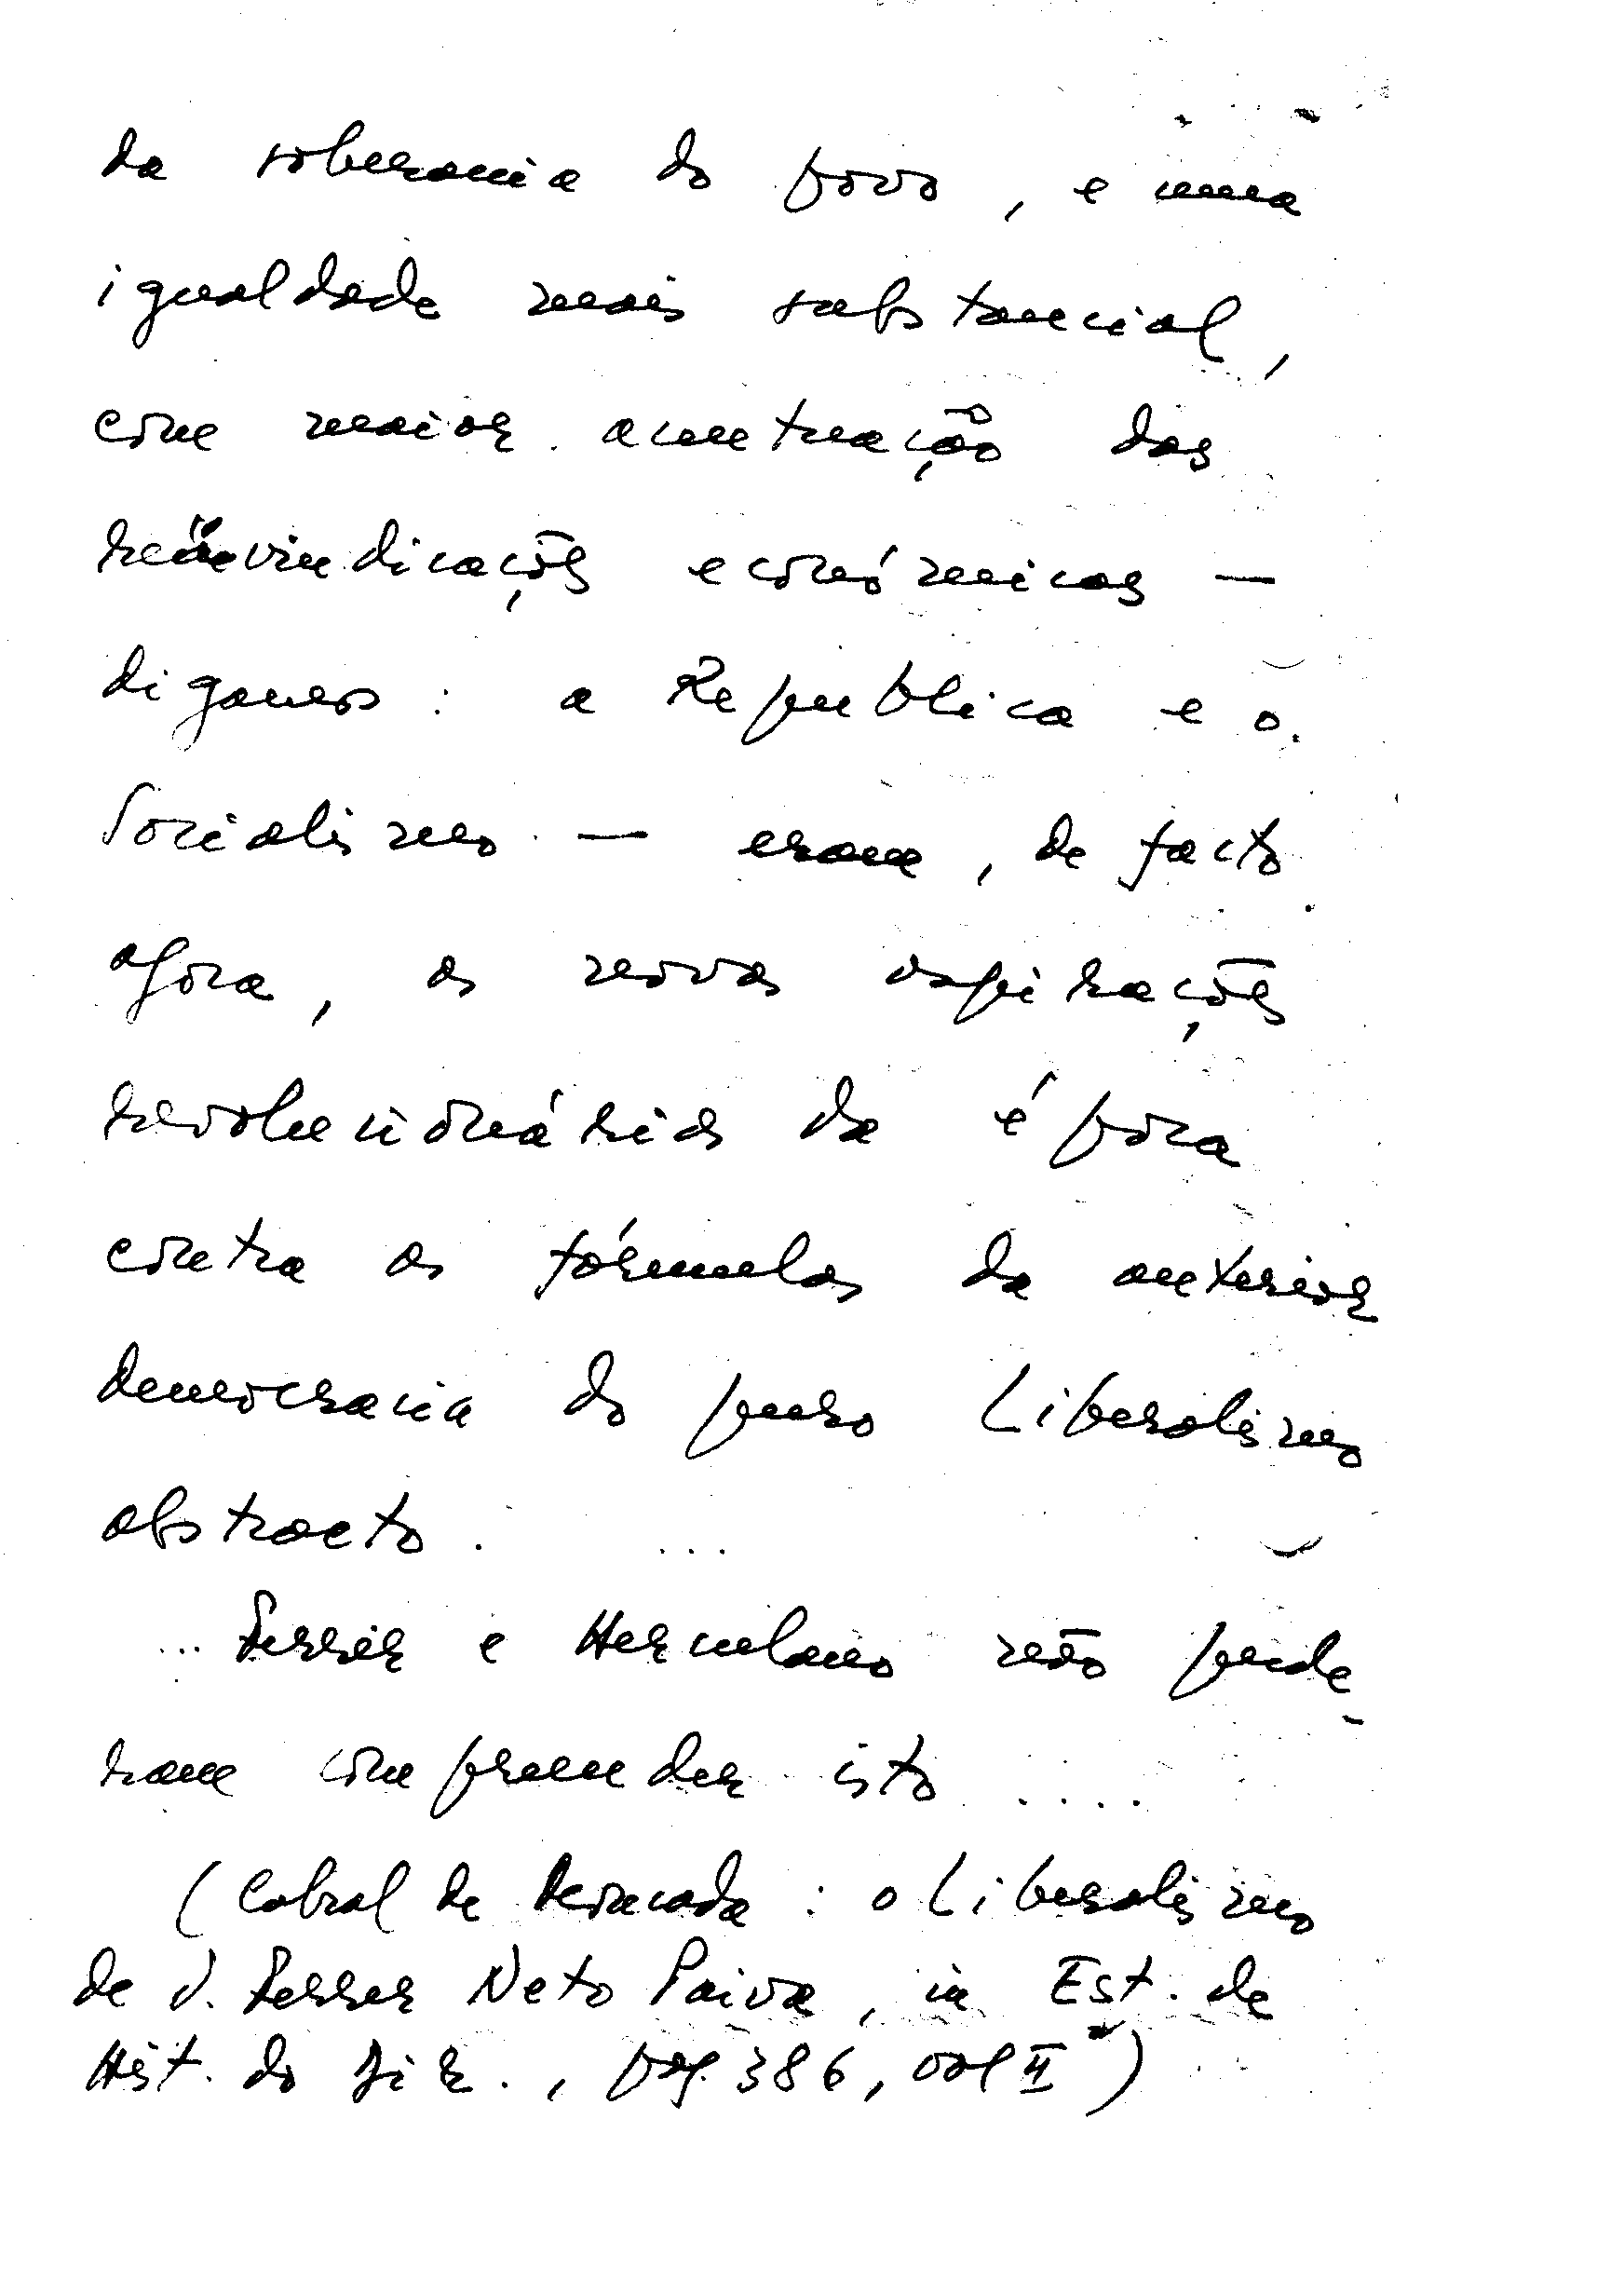 da soberania do povo, e uma
igualdade mais substancial,
com maior acentuação das
reivindicações económicas —
digamos: a Republica e o
Socialismo — eram, de facto
agora, as novas aspirações
revolucionárias da época
contra as fórmulas da anterior
democracia do puro Liberalismo
abstracto. ...
... Ferrer e Herculano não pude-
ram compreender isto ....
(Cabral de Moncada: o Liberalismo
de V. Ferrer Neto Paiva, in Est. de
Hist. do Dir., pag. 386, vol II)